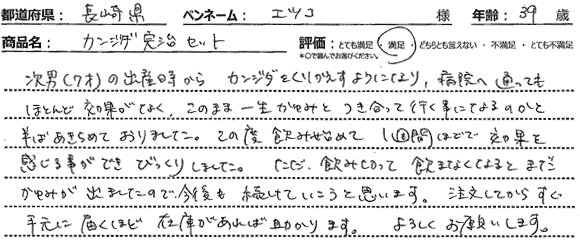 都道府県： 長崎県 ペンネーム： エツコ 様 年齢：39 歳
商品名： カンジダ完治セット 評価：とても満足・満足・どちらとも言えない・不満足・とても不満足
※○で囲んでお選びください。
次男(7才)の出産時から カンジダをくりかえすようになり，病院へ通っても
ほとんど効果がなく，このまま一生かゆみとつき合って行く事になるのかと
半ばあきらめておりました。この度飲み始めて 1週間ほどで効果を
感じる事ができ びっくりしました。ただ，飲みきって飲まなくなるとまだ
かゆみが出ましたので，今後も続けていこうと思います。注文してからすぐ
手元に届くほど 在庫があれば助かります。 よろしくお願いします。